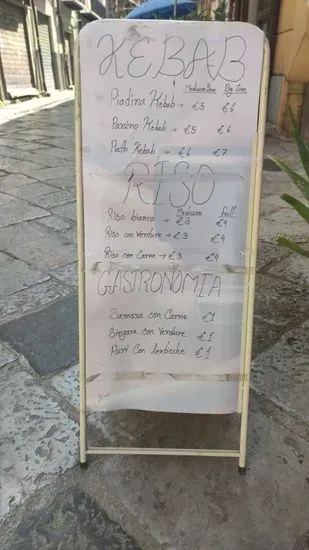 KEBAB
Medium Size Big Size
Piadina Kebab → €5 €6
Panino Kebab → €5 €6
Piatto Kebab → €6 €7
RISO
Medium full
Riso bianco → €3 €4
Riso con Verdure → €3 €4
Riso con Carne → €3 €4
GASTRONOMIA
Samosa con Carne €1
Singara con Verdure €1
Puri Con lenticche €1